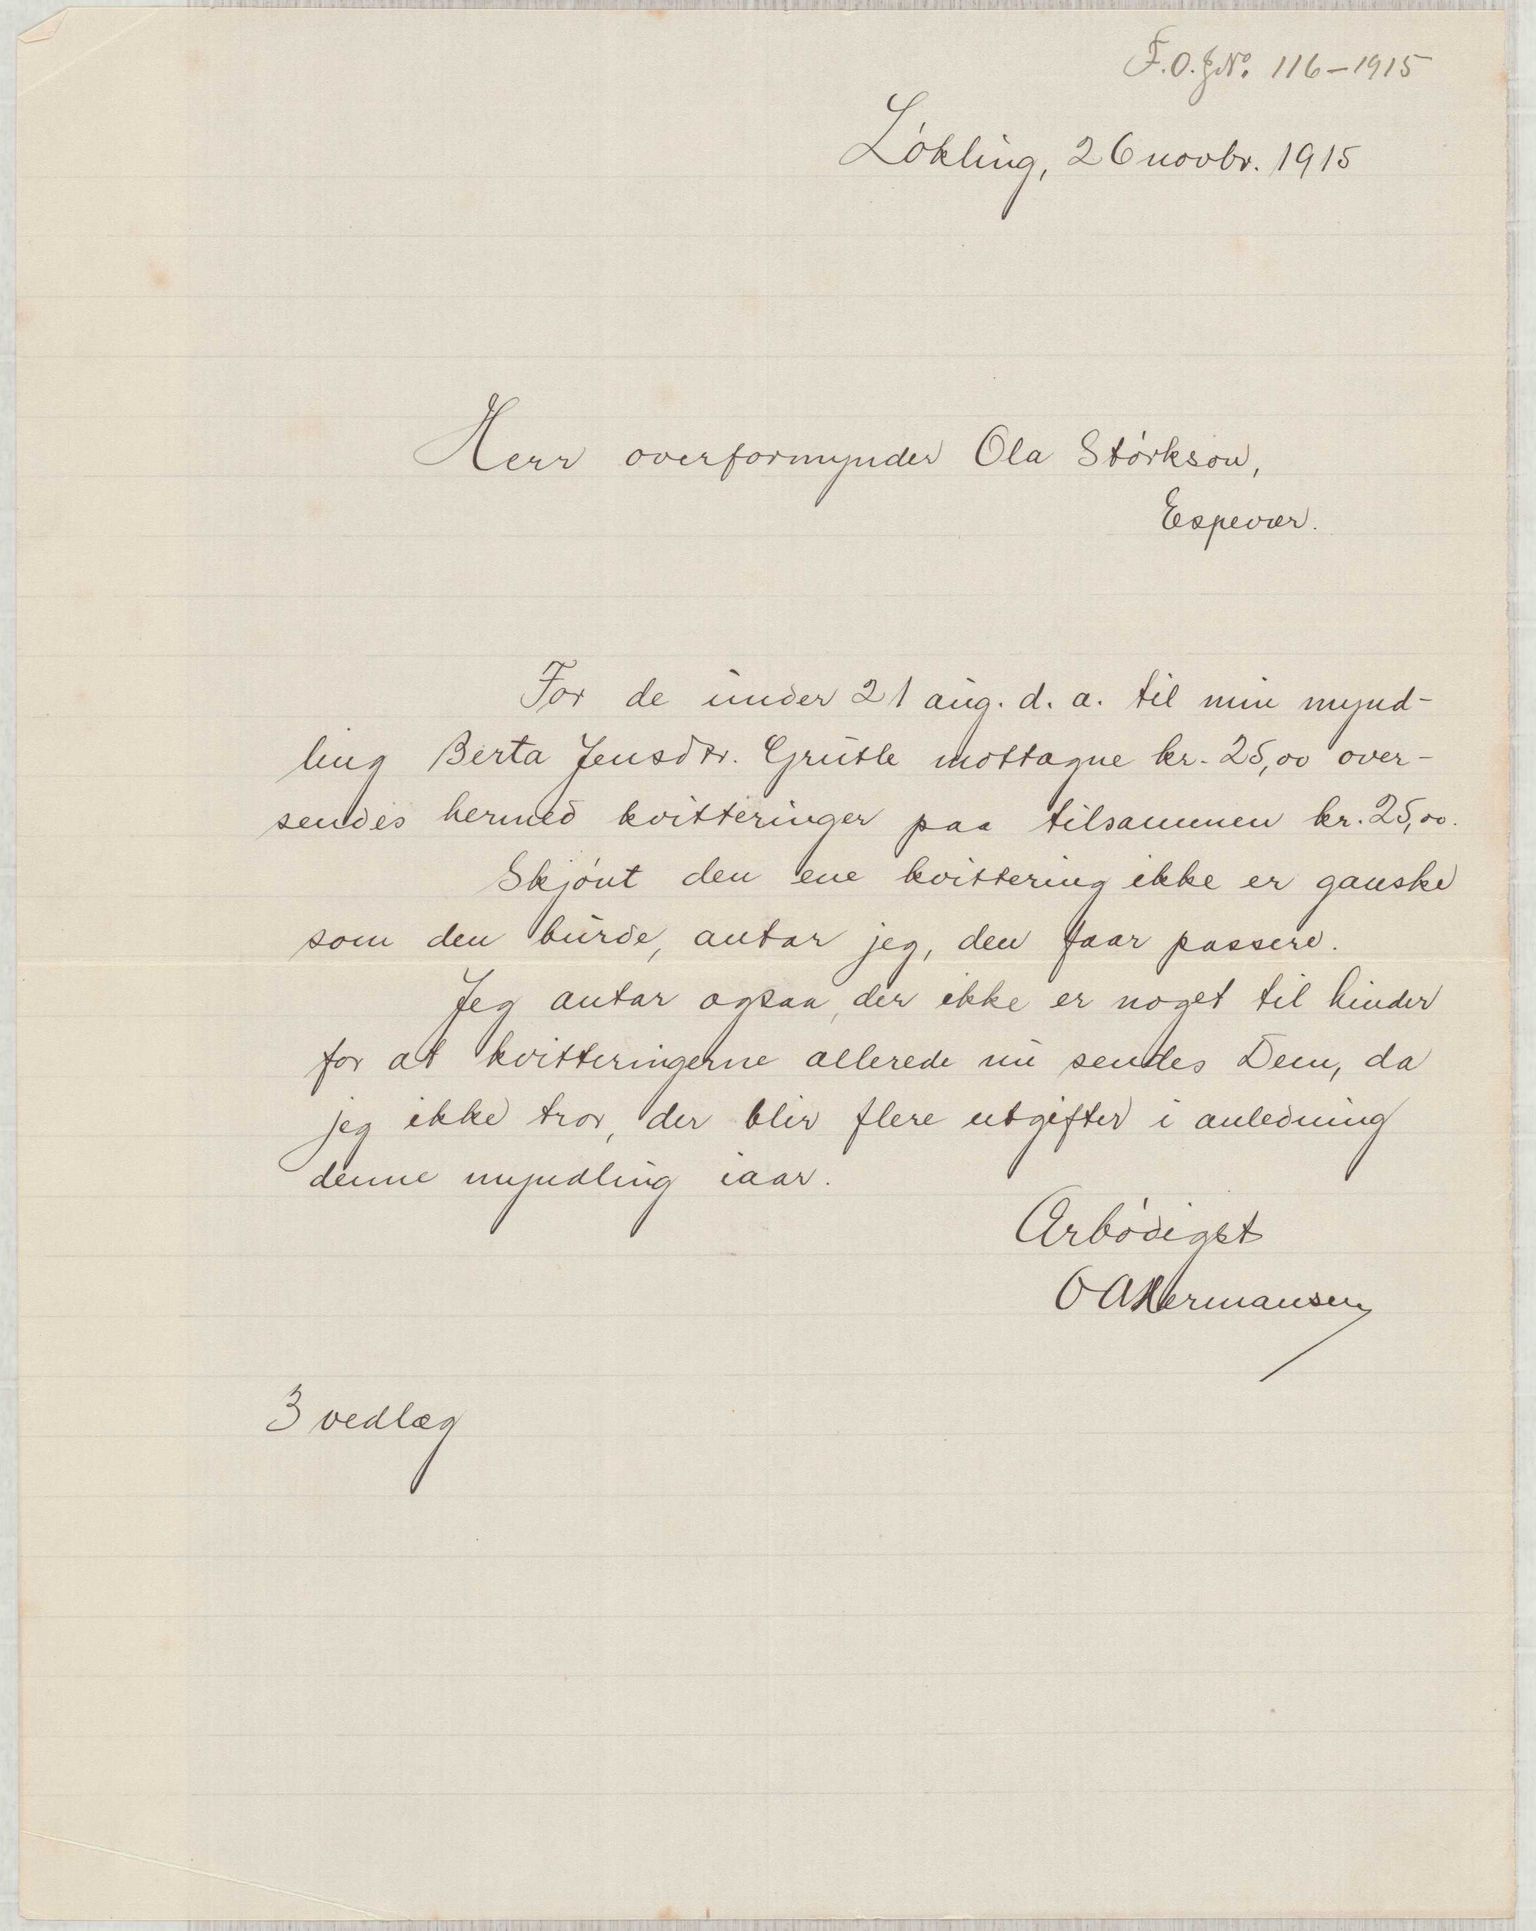 F.O.J.No. 116-1915
Lókling, 26 novbr. 1915
Herr overformynder Ola Størkson,
Espevær.
For de under 21 aug. d. a. til min mynd-
ling Berta Jensdtr. Grutle mottagne kr. 25,00 over-
sendes hermed kvitteringer paa tilsammen kr. 25,00.
Skjónt den ene kvittering ikke er ganske
som den burde, antar jeg, den faar passere.
Jeg antar ogsaa, der ikke er noget til hinder
for at kvitteringerne allerede nu sendes Dem, da
jeg ikke tror, der blir flere utgifter i anledning
denne myndling iaar.
Ærbódigst
O A Hermansen
3 vedlæg